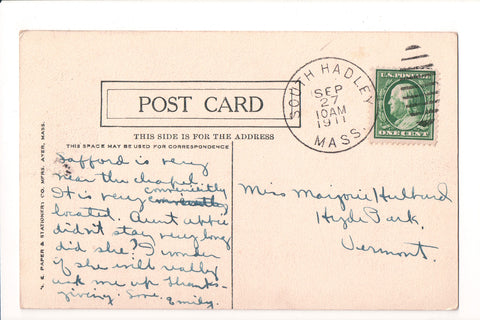 SOUTH HADLEY
MASS.
SEP
27
10AM
1911
U.S. POSTAGE
ONE CENT
POST CARD
THIS SIDE IS FOR THE ADDRESS
THIS SPACE MAY BE USED FOR CORRESPONDENCE
N. E. PAPER & STATIONERY CO. MFRS. AYER, MASS.
Safford is very
near the chapel.
conviniently
It is very
located. Aunt Abbie
didn't stay very long
did she? I wonder
if she will really
ask me up Thanks-
giving. Love. Emily.
Miss Marjorie Hulburd
Hyde Park,
Vermont.